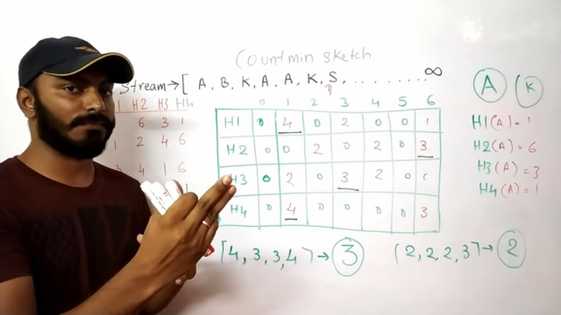 Countmin sketch
Stream→[ A, B, K, A, A, K, S, . . . . . . . . . ∞
H2 H3 H4
6 3 1
2 4 6
4 1 6
0 1 2 3 4 5 6
H1 0 4 0 2 0 0 1
H2 0 0 2 0 2 0 3
H3 0 2 0 3 2 0
H4 0 4 0 0 0 0 3
[4, 3, 3, 4] → 3
[2, 2, 2, 3] → 2
A K
H1(A) = 1
H2(A) = 6
H3(A) = 3
H4(A) = 1